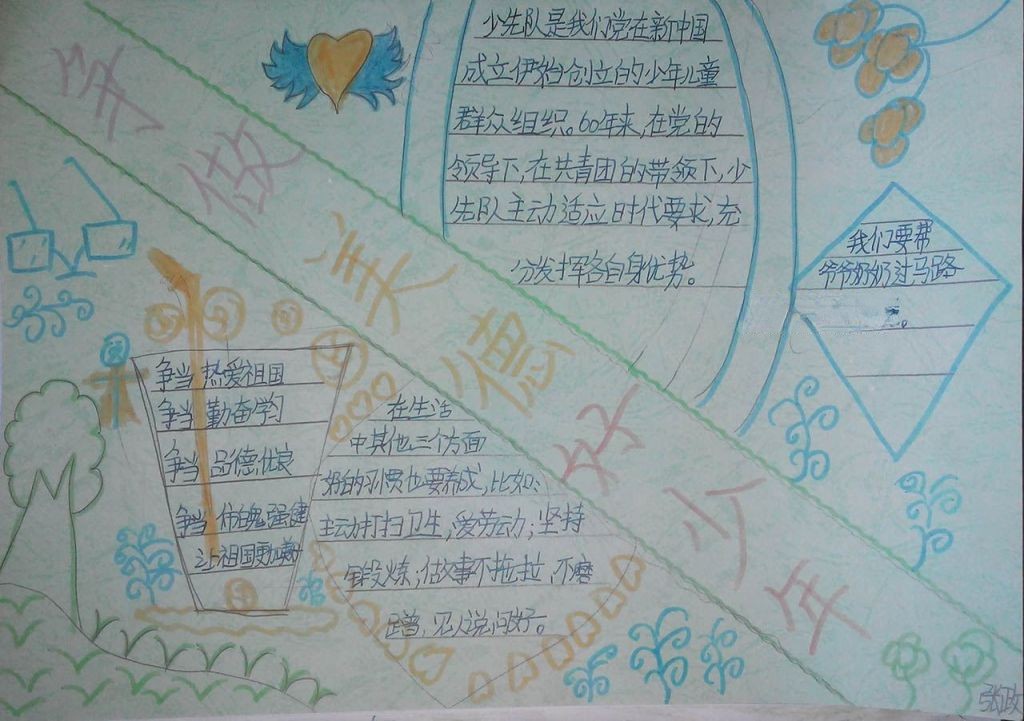 争做美德好少年
少先队是我们党在新中国
成立伊始创立的少年儿童
群众组织。60年来,在党的
领导下,在共青团的带领下,少
先队主动适应时代要求,充
分发挥各自身优势。
我们要帮
爷爷奶奶过马路
。
争当 热爱祖国
争当 勤奋学习
争当 品德优良
争当 体魄强健
让祖国更加
在生活
中其他三个方面
的习惯也要养成,比如:
主动打扫卫生,爱劳动;坚持
锻炼;做事不拖拉,不磨
蹭,见人说问好。
张政